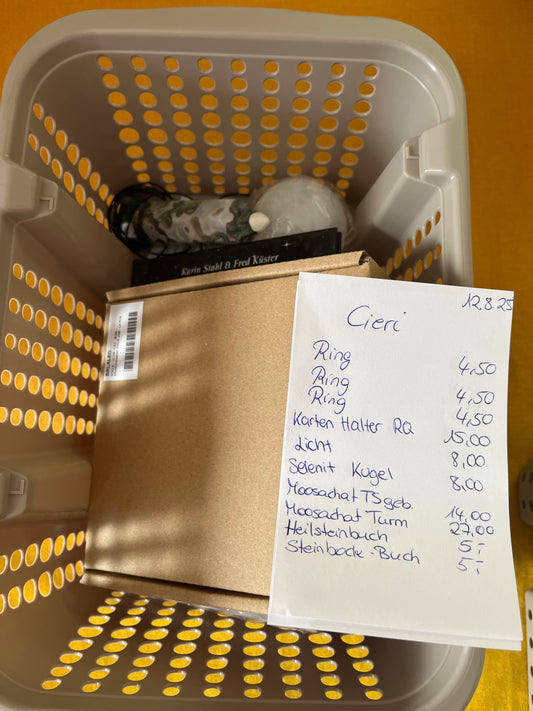 Karin Stahl & Fred Küster
12.8.25
Cieri
Ring 4,50
Ring 4,50
Ring 4,50
Karten Halter RQ 15,00
Licht 8,00
Selenit Kugel 8,00
Moosachat TS geb. 14,00
Moosachat Turm 27,00
Heilsteinbuch 5,-
Steinbock-Buch 5,-